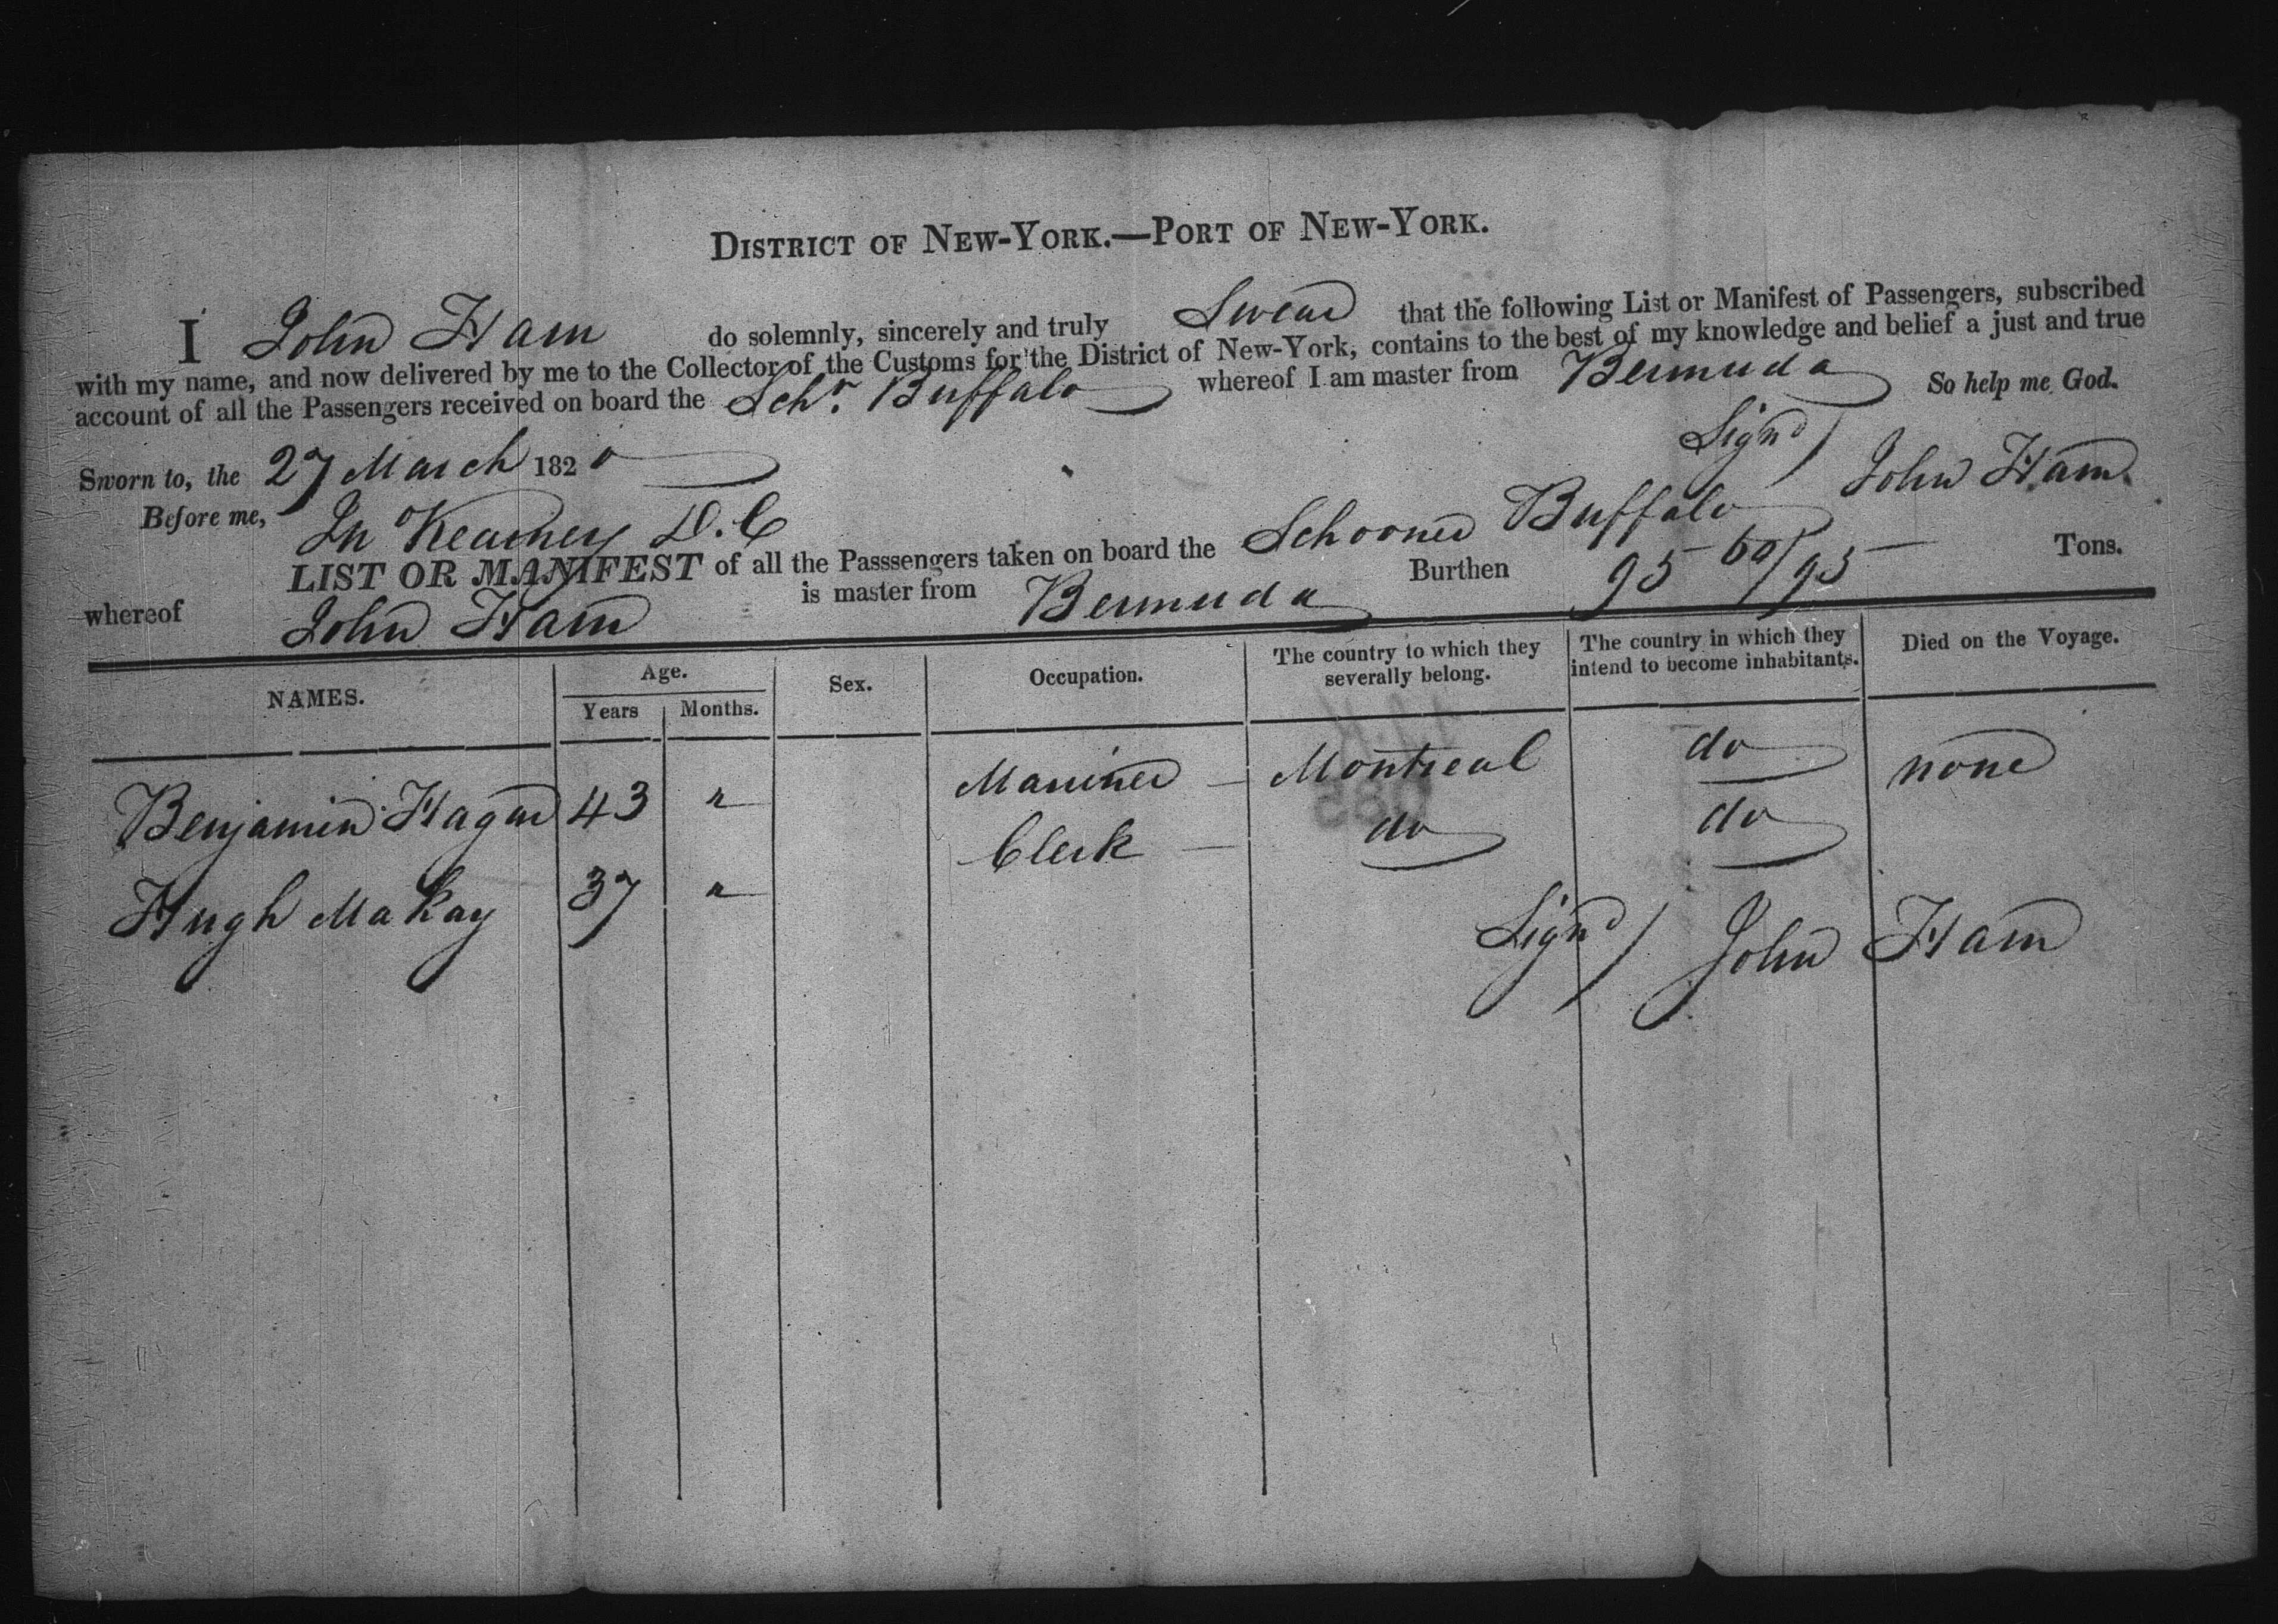 DISTRICT OF NEW-YORK.—PORT OF NEW-YORK.
I John Ham do solemnly, sincerely and truly Swear that the following List or Manifest of Passengers, subscribed
with my name, and now delivered by me to the Collector of the Customs for the District of New-York, contains to the best of my knowledge and belief a just and true
account of all the Passengers received on board the Schr. Buffalo whereof I am master from Bermuda So help me God.
Sworn to, the 27 March 1820 Signd/ John Ham
Before me, Jn Kearney D.C
LIST OR MANIFEST of all the Passsengers taken on board the Schooner Buffalo Burthen 95 60/95 Tons.
whereof John Ham is master from Bermuda
NAMES. Age. Years Months. Sex. Occupation. The country to which they severally belong. The country in which they intend to become inhabitants. Died on the Voyage.
Benjamin Hagar 43 " Mariner Montreal do none
Hugh MaKay 37 " Clerk do do
Signd/ John Ham